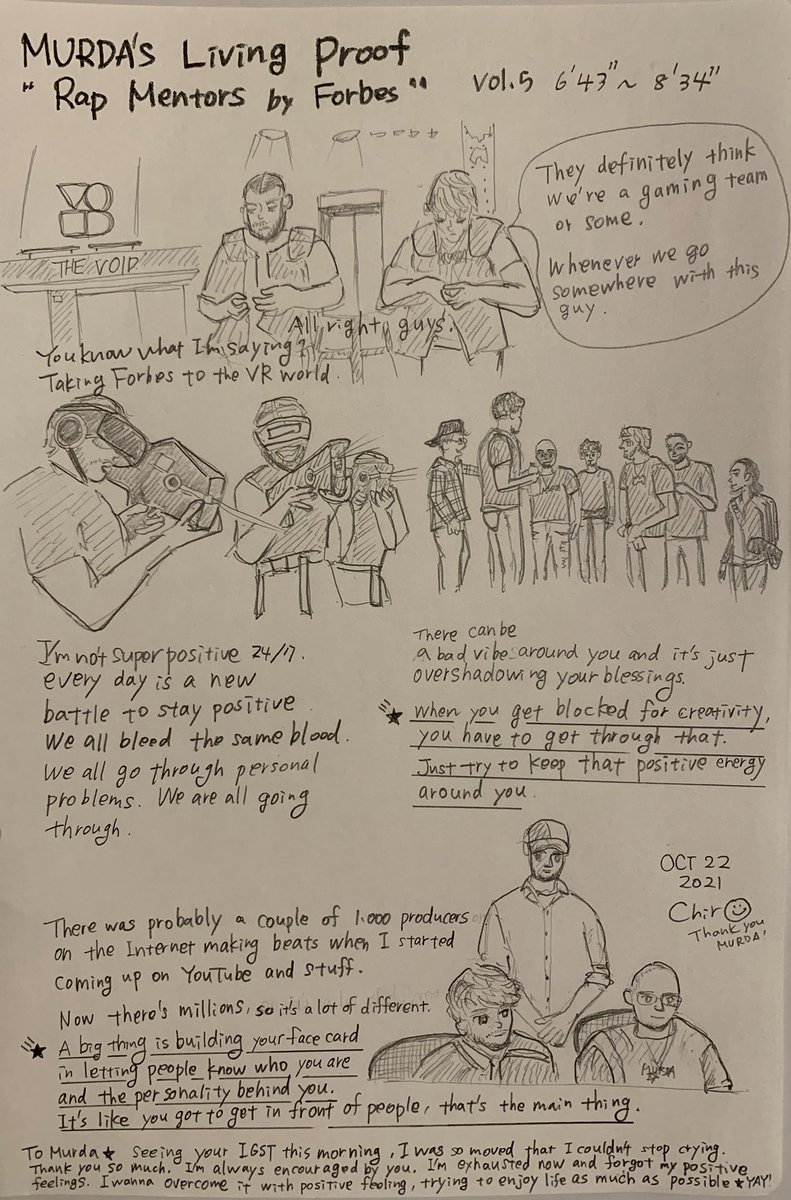 MURDA's Living Proof
"Rap Mentors by Forbes" vol.5 6'43"~ 8'34"
They definitely think
we're a gaming team
or some.
Whenever we go
somewhere with this
guy.
THE VOID
All righty guys.
You know what I'm saying?
Taking Forbes to the VR world.
I'm not super positive 24/7.
every day is a new
battle to stay positive.
We all bleed the same blood.
We all go through personal
problems. We are all going
through.
There can be
a bad vibe around you and it's just
overshadowing your blessings.
★ When you get blocked for creativity,
you have to get through that.
Just try to keep that positive energy
around you.
OCT 22
2021
Chiro
Thank you
MURDA!
There was probably a couple of 1.000 producers
on the Internet making beats when I started
coming up on YouTube and stuff.
Now there's millions, so it's a lot of different.
★ A big thing is building your face card
in letting people know who you are
and the personality behind you.
It's like you got to get in front of people, that's the main thing.
To Murda★ Seeing your IGST this morning, I was so moved that I couldn't stop crying.
Thank you so much. I'm always encouraged by you. I'm exhausted now and forgot my positive
feelings. I wanna overcome it with positive feeling, trying to enjoy life as much as possible ★YAY!